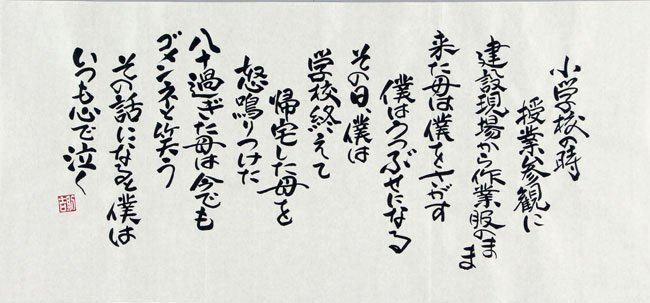 小学校の時
授業参観に
建設現場から作業服のまま
来た母は僕をさがす
僕はうつぶせになる
その日、僕は
学校終えて
帰宅した母を
怒鳴りつけた
八十過ぎた母は今でも
ゴメンネと笑う
その話になると僕は
いつも心で泣く